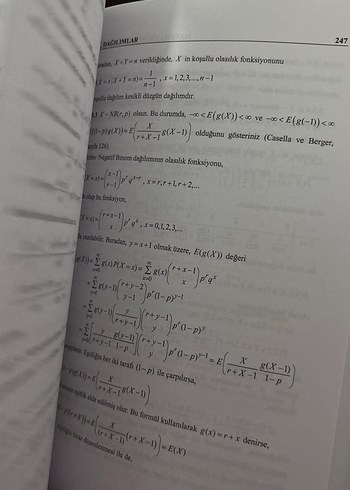 DAĞILIMLAR 247
X+Y=n verildiğinde, X in koşullu olasılık fonksiyonunu
X=x|X+Y=n)=1/(n-1), x=1,2,3,...,n-1
dağılım kesikli düzgün dağılımdır.
X~NB(r,p) olsun. Bu durumda, -∞<E(g(X))<∞ ve -∞<E(g(-1))<∞
(1-p)g(X))=E(X/(r+X-1) g(X-1)) olduğunu gösteriniz (Casella ve Berger,
126).
Negatif Binom dağılımının olasılık fonksiyonu,
X=x)=(x-1 r-1)p^r q^(x-r), x=r,r+1,r+2,...
olup bu fonksiyon,
X=x)=(r+x-1 x)p^r q^x, x=0,1,2,3,...
yazılabilir. Buradan, y=x+1 olmak üzere, E(g(X)) değeri
g(X))=∑g(x)P(X=x)=∑g(x)(r+x-1 x)p^r q^x
=∑g(y-1)(r+y-2 y-1)p^r(1-p)^(y-1)
=∑g(y-1)(y/(r+y-1))(r+y-1 y)p^r(1-p)^y
=∑[y/(r+y-1) g(y-1)/(1-p)](r+y-1 y)p^r(1-p)^(y-1)=E(X/(r+X-1) g(X-1)/(1-p))
Eşitliğin her iki tarafı (1-p) ile çarpılırsa,
g(X))=E(X/(r+X-1) g(X-1))
eşitlik elde edilmiş olur. Bu formül kullanılarak g(x)=r+x denirse,
(r+X))=E(X/(r+X-1)(r+X-1))=E(X)
düzenlenmesi ile de,